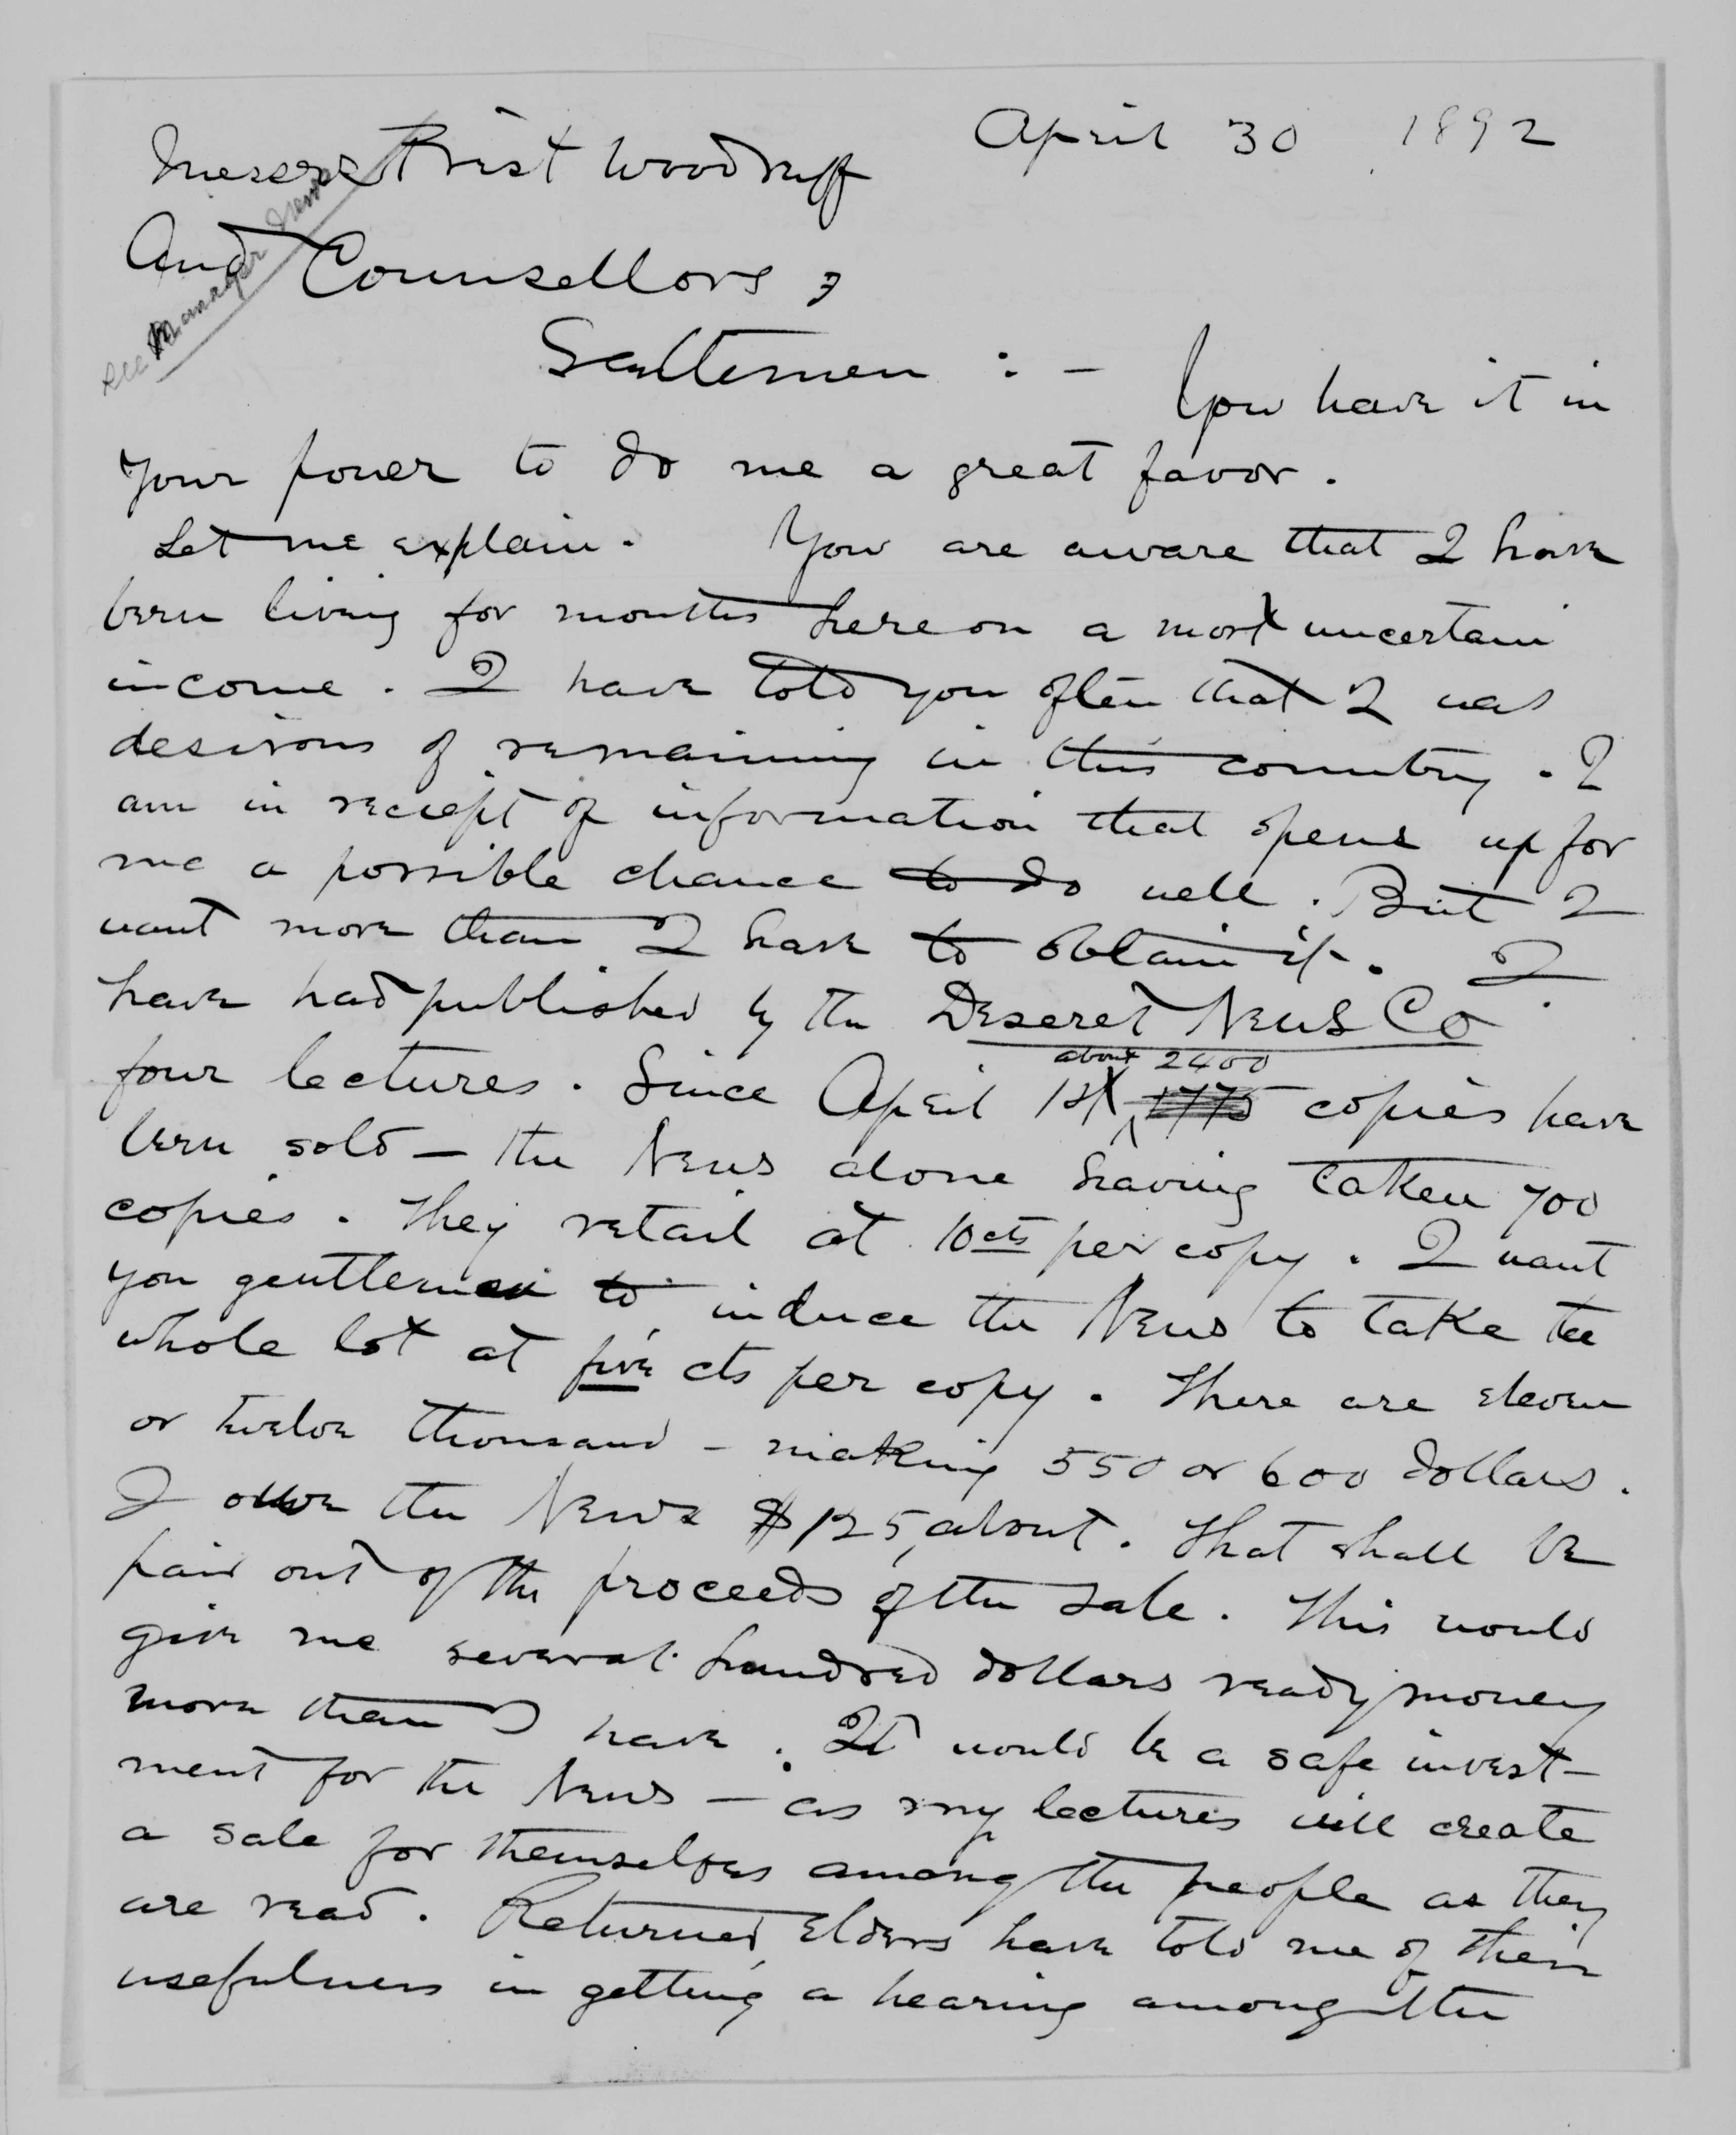 April 30 1892
Messrs Prest Woodruff
And Counsellors,
see Manager News
Gentlemen :- You have it in
your power to do me a great favor.
Let me explain. You are aware that I have
been living for months here on a most uncertain
income. I have told you often that I was
desirous of remaining in this country. I
am in reciept of information that opens up for
me a possible chance to do well. But I
want more than I have to obtain it. I
have had published by the Deseret News Co
four lectures. Since April 1st about 2400 1775 copies have
been sold — the News alone having taken 700
copies. They retail at 10cts per copy. I want
you gentlemen to induce the News to take the
whole lot at five cts per copy. There are eleven
or twelve thousand - making 550 or 600 dollars.
I owe the News $125, about. That shall be
paid out of the proceeds of the sale. This would
give me several hundred dollars ready money
more than I have. It would be a safe invest-
ment for the News — as my lectures will create
a sale for themselves among the people as they
are read. Returned Elders have told me of their
usefulness in getting a hearing among the